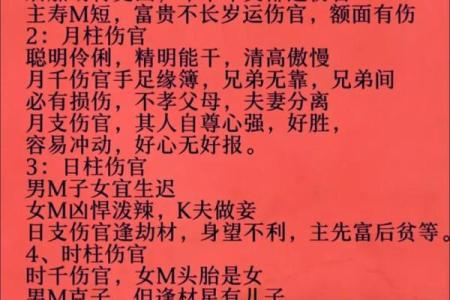 主寿M短，富贵不长岁运伤官，额面有伤
2：月柱伤官
聪明伶俐，精明能干，清高傲慢
月千伤官手足缘簿，兄弟无靠，兄弟间
必有损伤，不孝父母，夫妻分离
月支伤官，其人自尊心强，好胜，
容易冲动，好心无好报。
3：日柱伤官
男M子女宜生迟
女M凶悍泼辣，K夫做妾
日支伤官逢劫材，身望不利，主先富后贫等。
4、时柱伤官
时千伤官，女M头胎是女
男M克子，但逢材星有儿子